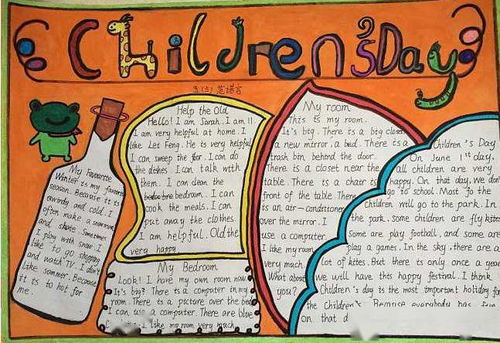 Children's Day
My Favourite
Winter is my favorite
season. Because it is
windy and cold. I
often make a snowman
and skate. Sometimes
I play with snow. I
like to go shopping
and watch TV. I don't
like summer. Because
it is to hot for
me.
Help the Old
Hello! I am Sarah. I am 11
I am very helpful at home. I
like Lei Feng. He is very helpful
I can sweep the floor. I can do
the dishes. I can talk with
them. I can clean the
bedroom. I can
cook the meals. I can
put away the clothes.
I am helpful. Old the
very happy
My Bedroom
Look! I have my own room now
It's big! There is a computer in my
room. There is a picture over the bed
I can use a computer. There are blue
like my room very much
My room
This is my room.
It's big. There is a big closet
a new mirror, a bed. There is a
trash bin behind the door.
There is a closet near the
table. There is a chair is
front of the table. There
is an air-conditioner
over the mirror. I
use a computer.
I like my room
very much.
What about
you?
Children's Day
On June 1st day,
all children are very
happy. On that day, we don't
go to school. Most fo the
Children will go to the park. In
the park, some children are fly kites
Some are play football, and some are
play a games. In the sky, there are a
lot of kites. But there is only once a year
we will have this happy festival. I think
Children's day is the most important holiday for
the Children. Because everybody has
on that d